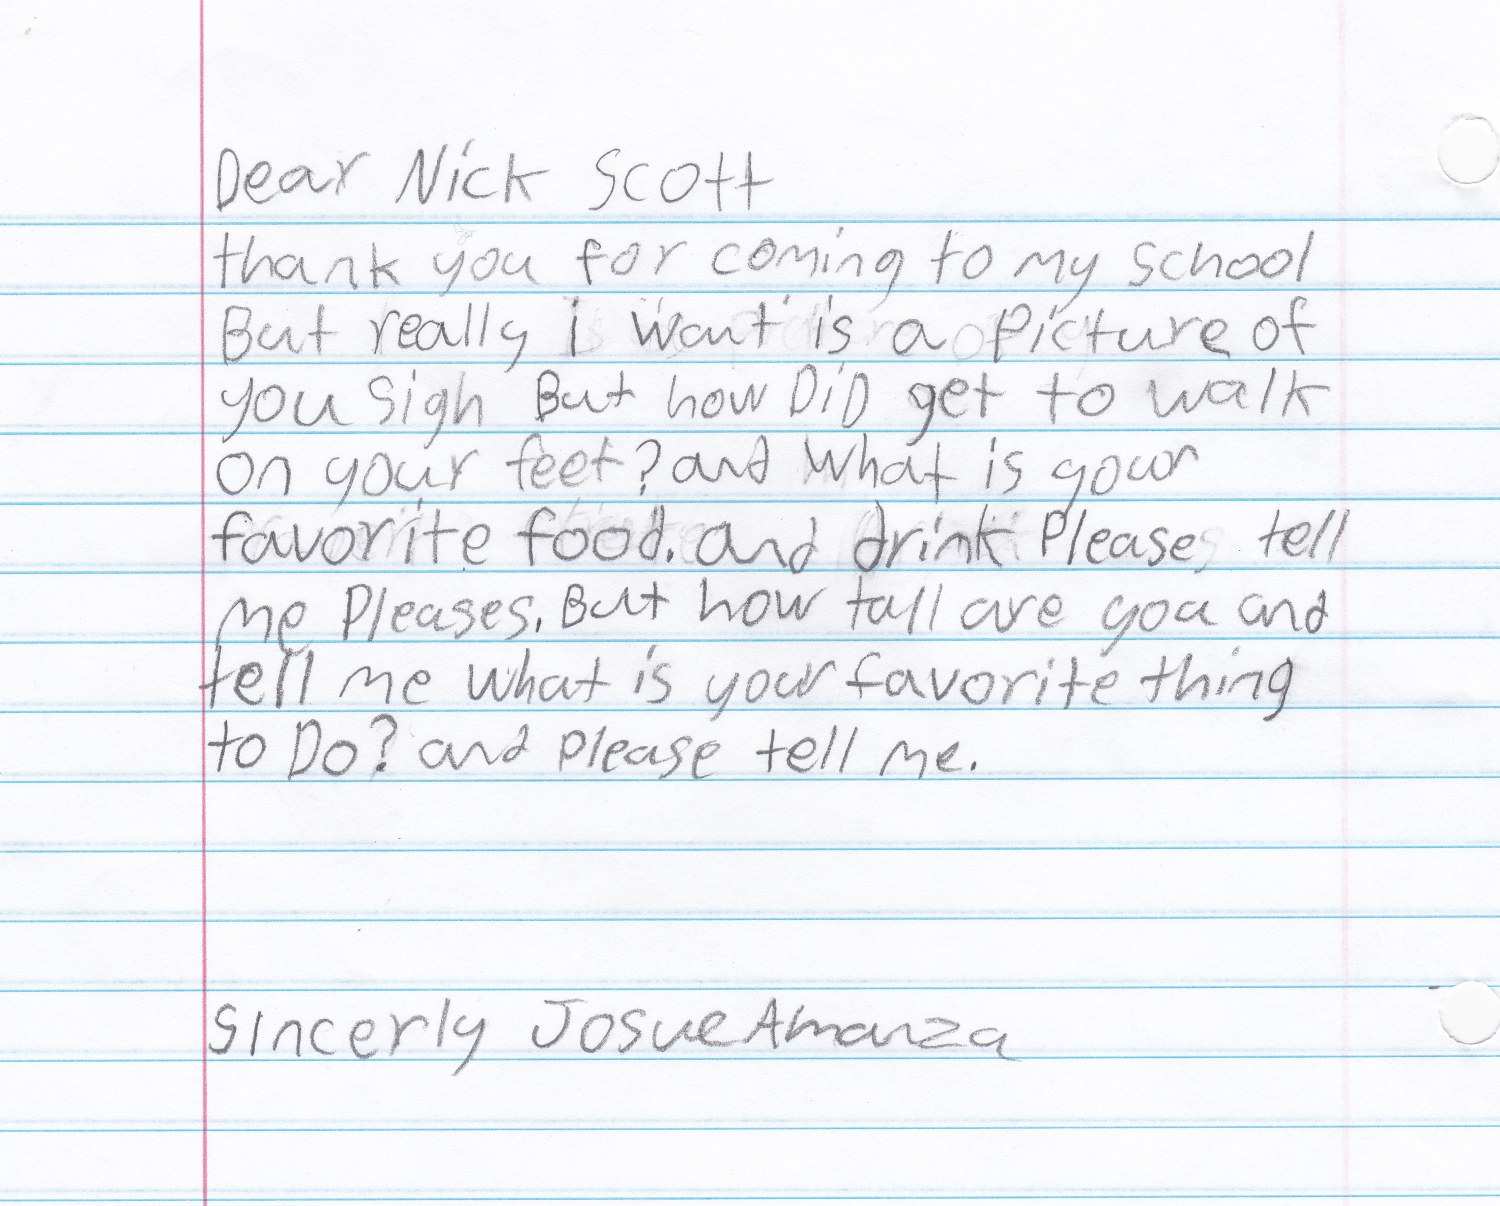 Dear Nick Scott
thank you for coming to my school
But really i want is a Picture of
you sigh But how DiD get to walk
on your feet? and What is your
favorite food. and drink Please tell
me Pleases. But how tall are you and
tell me what is your favorite thing
to Do? and please tell me.
Sincerly Josue Almanza